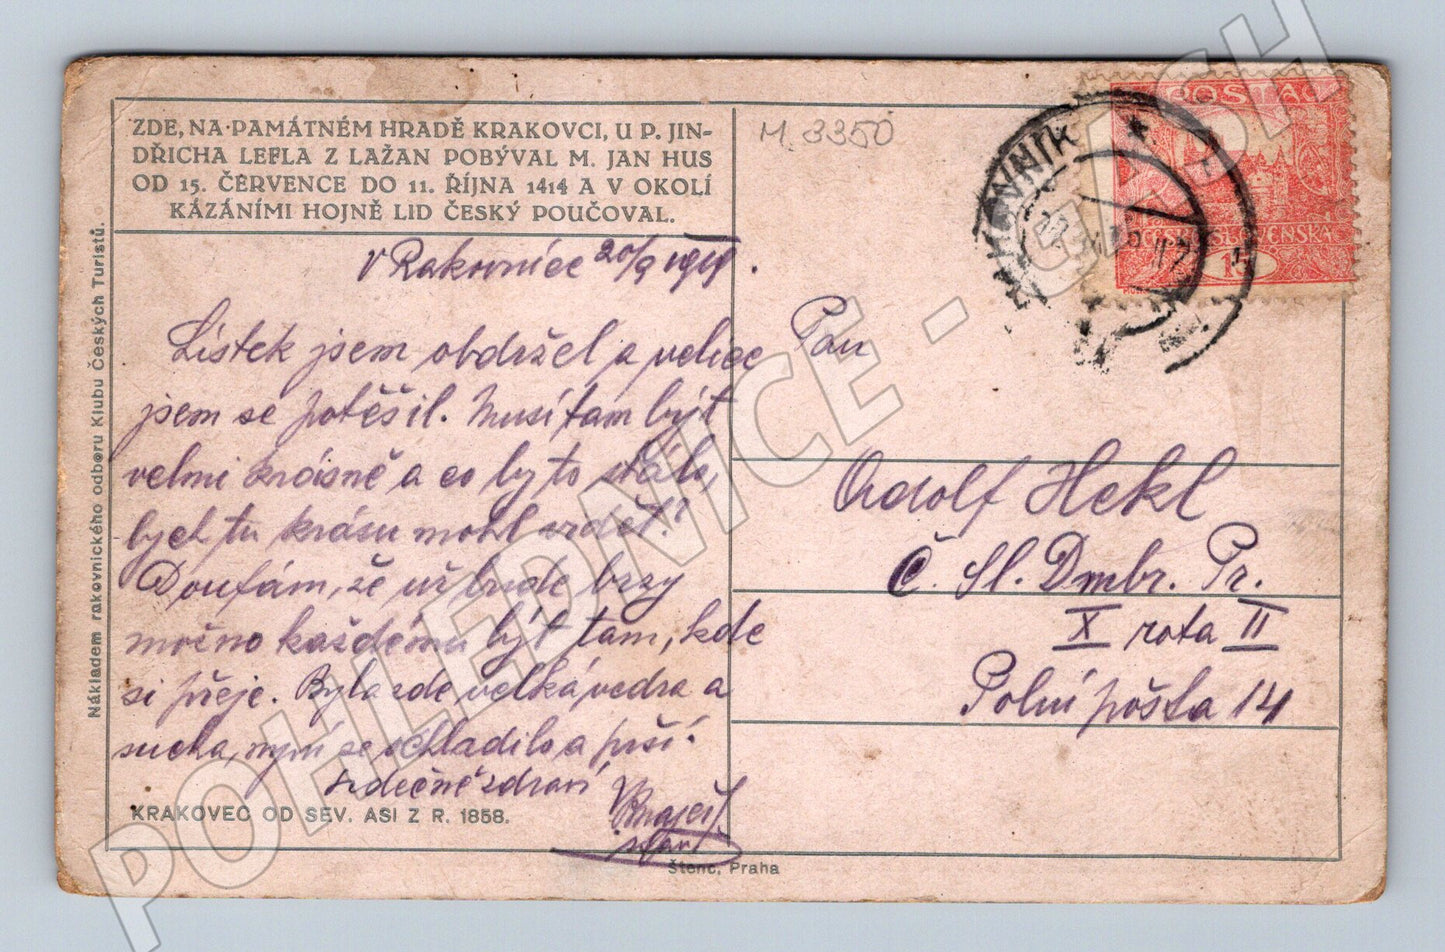 ZDE, NA PAMÁTNÉM HRADĚ KRAKOVCI, U P. JIN-
DŘICHA LEFLA Z LAŽAN POBÝVAL M. JAN HUS
OD 15. ČERVENCE DO 11. ŘÍJNA 1414 A V OKOLÍ
KÁZÁNÍMI HOJNĚ LID ČESKÝ POUČOVAL.
Nákladem rakovnického odboru Klubu Českých Turistů.
V Rakovníce 20/9 1919.
Lístek jsem obdržel a velice
jsem se potěšil. Musí tam být
velmi krásně a co by to stálo,
bych tu krásu mohl vidět!
Doufám, že už bude brzy
možno každému být tam, kde
si přeje. Byla zde velká vedra a
sucha, nyní se ochladilo a prší.
Srdečně zdraví
KRAKOVEC OD SEV. ASI Z R. 1858.
Štenc, Praha
M. 3350
Pan
Adolf Hekl
Č. Sl. Dmbr. Pr.
X rota II
Polní pošta 14
POŠTA
ČESKO-SLOVENSKÁ
15
RAKOVNÍK
POHLEDNICE - CASH